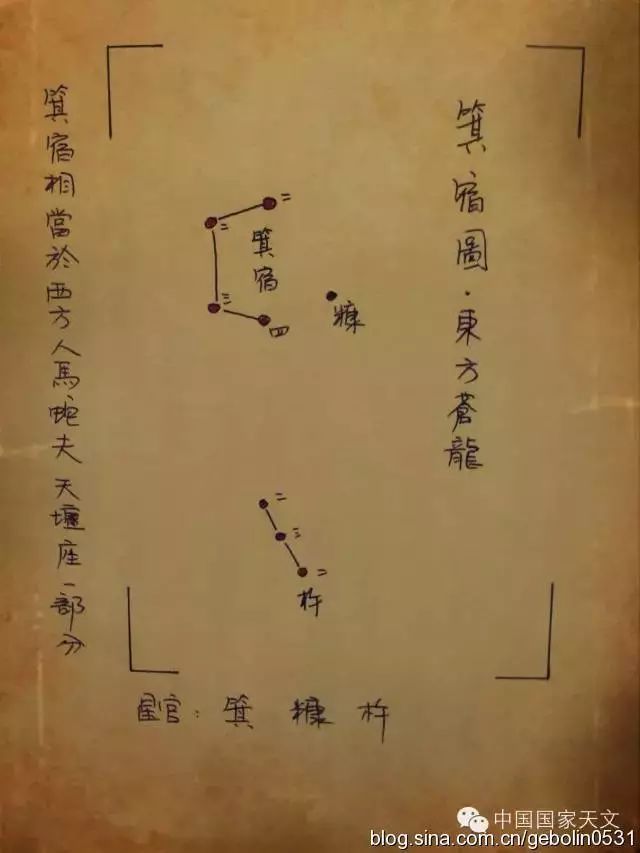 箕宿圖·東方蒼龍
箕宿相當於西方人馬蛇夫天壇座一部分
二
二
箕宿
三
四
糠
二
三
二
杵
星官：箕 糠 杵
中国国家天文
blog.sina.com.cn/gebolin0531